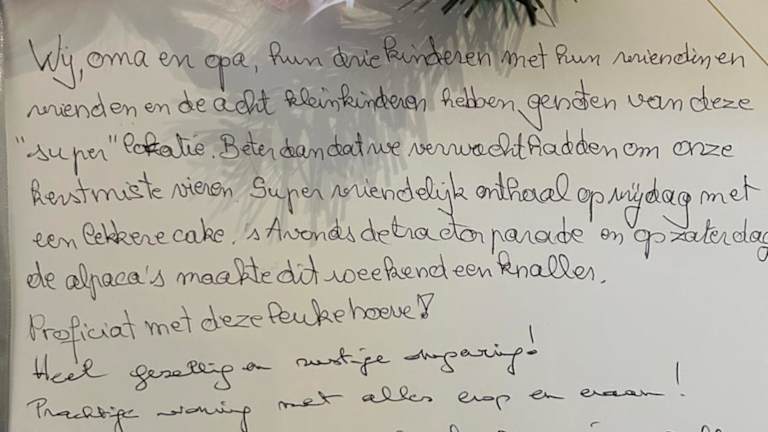 Wij, oma en opa, hun drie kinderen met hun vriendin en
vrienden en de acht kleinkinderen hebben genoten van deze
"super" lokatie. Beter dan dat we verwacht hadden om onze
kerstmis te vieren. Super vriendelijk onthaal op vrijdag met
een lekkere cake. 's Avonds de tractorparade en op zaterdag
de alpaca's maakte dit weekend een knaller.
Proficiat met deze leuke hoeve!
Heel gezellig en rustige omgeving!
Prachtige woning met alles erop en eraan!